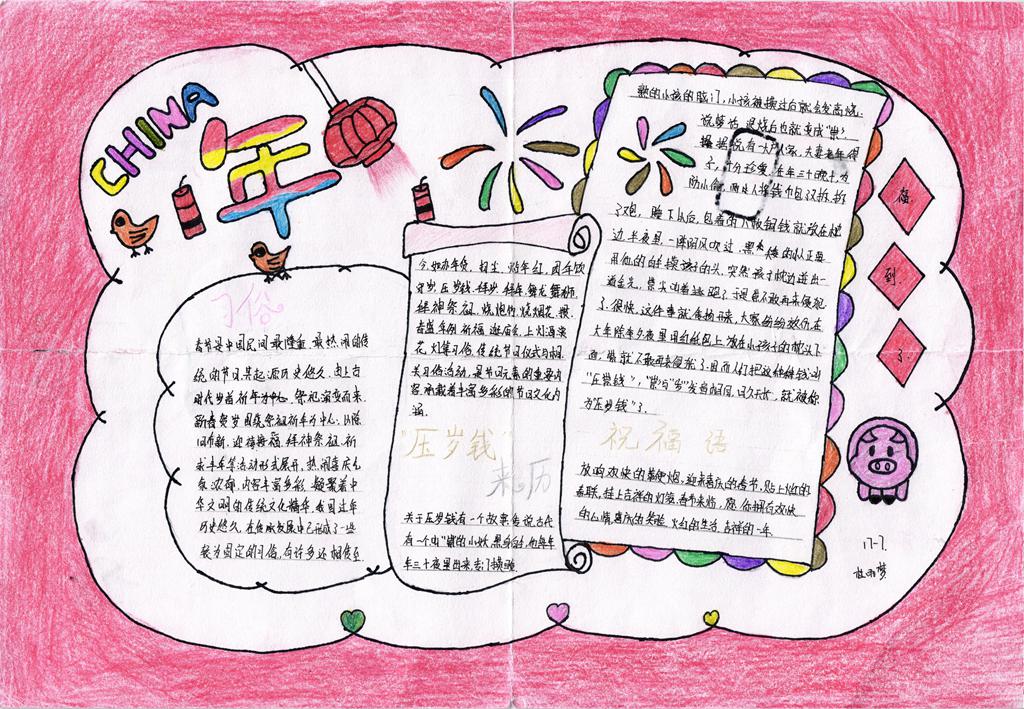 CHINA
年
习俗
春节是中国民间最隆重、最热闹的传
统的节日其起源历史悠久,由上古
时代岁首祈年祭祀演变而来
新春贺岁围绕祭祖祈年为中心,以除
旧布新、迎禧接福、拜神祭祖、祈
求丰年等活动形式展开,热闹喜庆气
氛浓郁,内容丰富多彩,凝聚着中
华文明的传统文化精华。我国过年
历史悠久,在传承发展中已形成了一些
较为固定的习俗,有许多还相传至
今,如办年货、扫尘、贴年红、团年饭
守岁、压岁钱、拜岁、拜年、舞龙舞狮、
拜神祭祖、烧炮竹、烧烟花、掼
春盛、年例、祈福、逛庙会、上灯酒、赏
花灯等习俗。传统节日仪式与相
关习俗活动,是节日元素的重要内
容,承载着丰富多彩的节日文化内
涵。
"压岁钱"
来历
关于压岁钱有一个故事传说古代
有一个叫"祟"的小妖黑身白手,他每年
年三十夜里出来,专门摸睡
熟的小孩的脑门,小孩被摸过后就会发高烧,
说梦话,退烧后也就变成
据说有一户人家,夫妻老年得
子,十分珍爱。在年三十晚上,为
防小偷
了包,睡下以后,包着的八枚铜钱就放在枕
边,半夜里,一阵阴风吹过,黑矮的小人正要
用他的白手摸孩子的头,突然孩子枕边迸出一
道金光,祟尖叫着逃跑了于是再不敢再来侵犯
了。很快,这件事就传扬开来,大家纷纷效仿在
大年除年夕夜里用红纸包上钱放在小孩子的枕头下
面,祟就不敢再来侵扰了。因而人们把这种钱叫
"压祟钱","祟"与"岁"发音相同,日久天长,就被称
为"压岁钱"了。
祝福语
放响欢快的鞭炮,迎来喜庆的春节,贴上火红的
春联,挂上吉祥的灯笼,春节来临,愿你拥有欢快
的心情,喜庆的笑脸,火红的生活,吉祥的一年。
福
到
了
17-7.